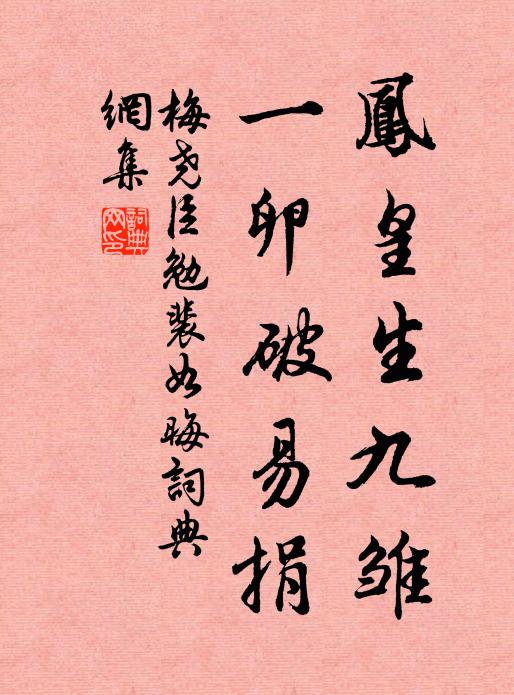 鳳皇生九雏
一卵破易捐
梅尧臣勉裴如晦詞典
網集
詞典網印